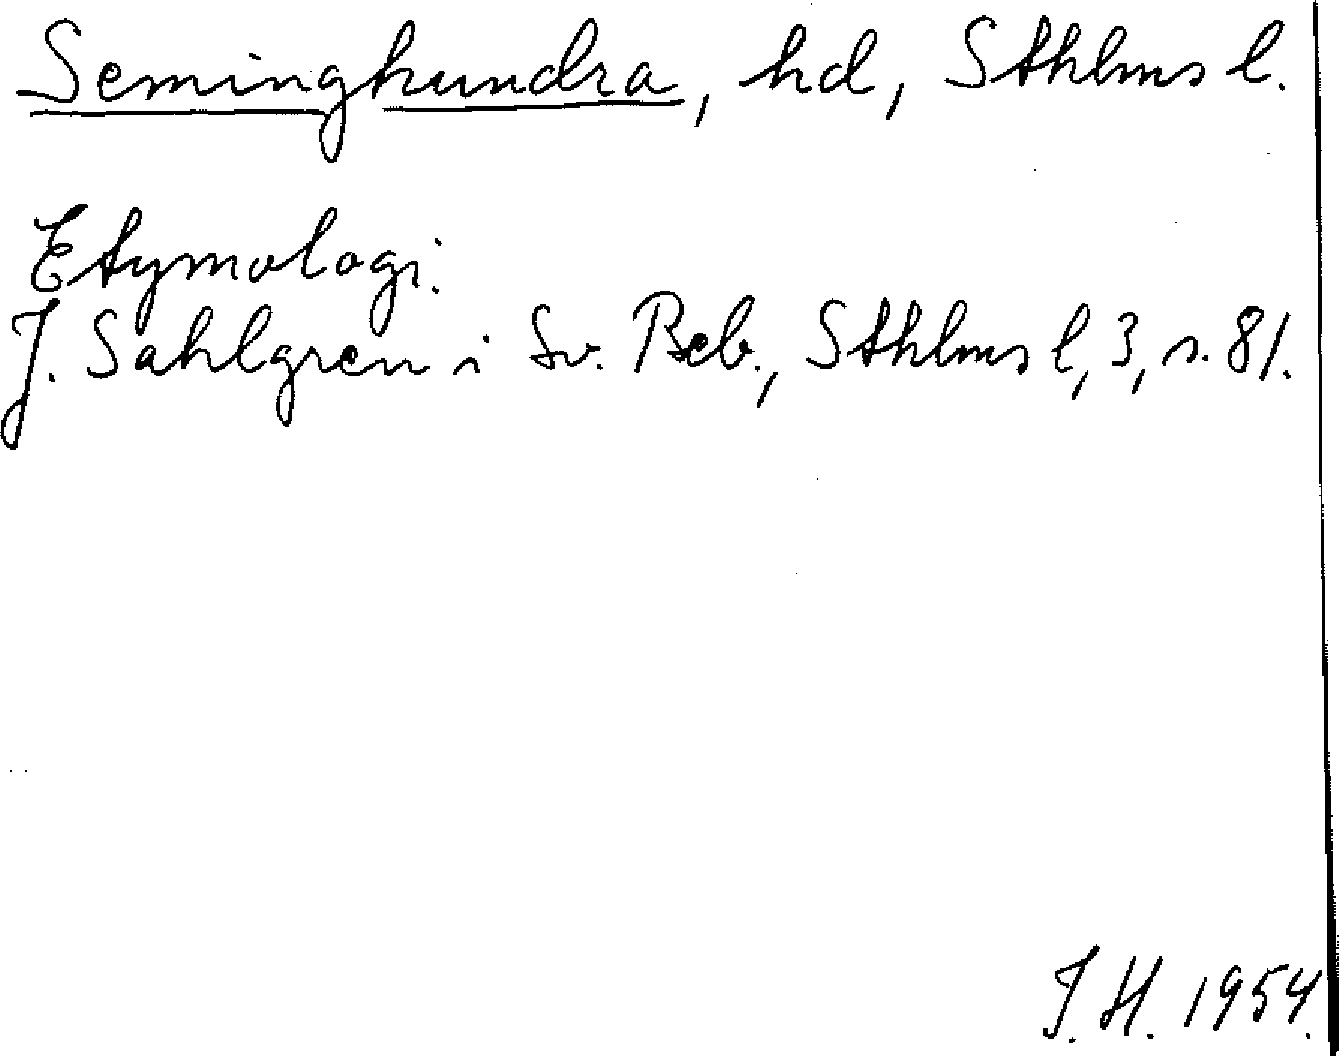 Seminghundra, hd, Sthlms l.
Etymologi.
J. Sahlgren i Sv. Beb., Sthlms l, 3, s. 81.
J.H. 1954.